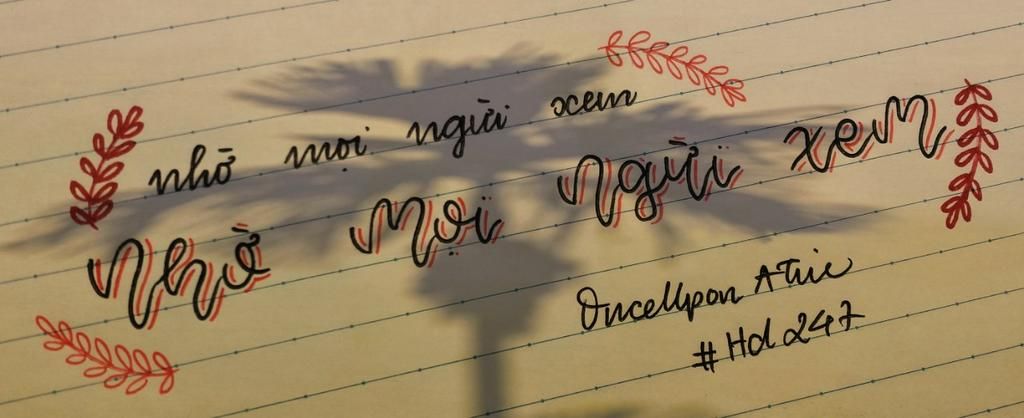 nhờ mọi ngừi xem
Nhờ mọi ngừi xem
OnceUpon ATime
#Hd247